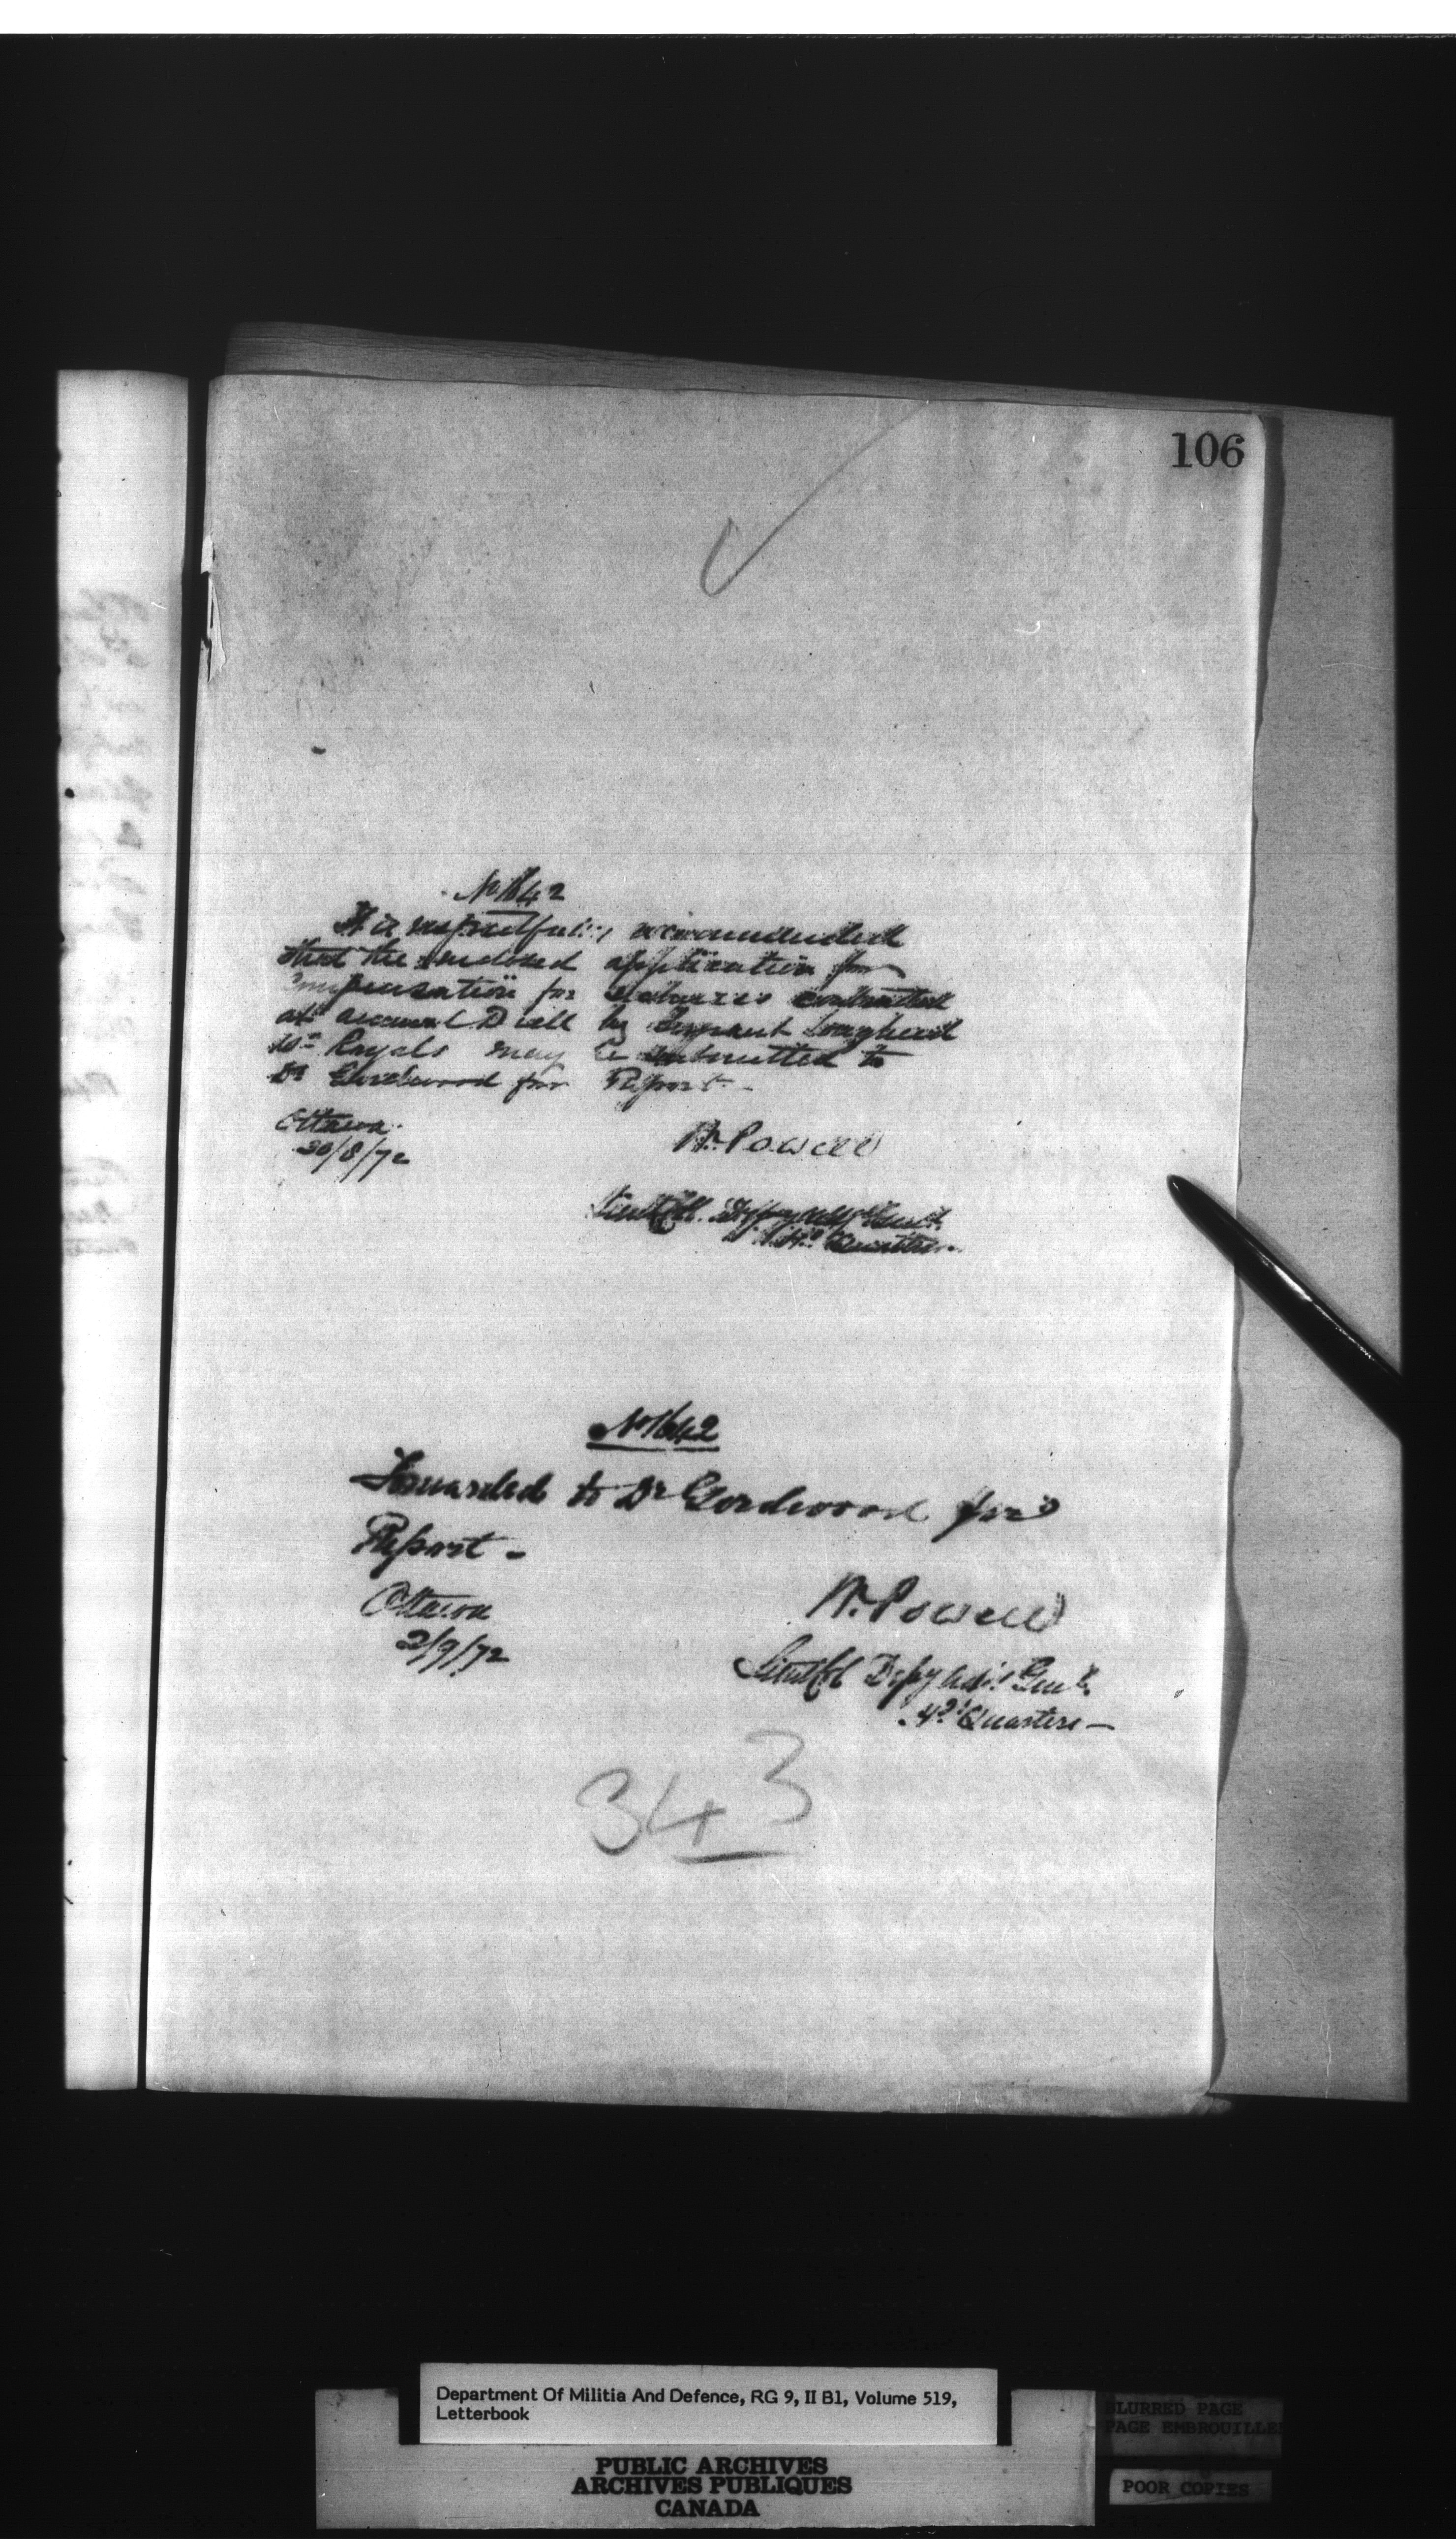 106
No 1642
It is respectfully recommended
that the enclosed application for
Compensation for contracted
at annual Drill by Sergeant
10th Royals may be submitted to
Dr for Report -
Ottawa
30/8/72
W. Powell
Lieut Col. Depy Adjt Genl.
Hd Quarters
No 1642
Forwarded to Dr for
Report -
Ottawa
2/9/72
W. Powell
Lieut Col Depy Adjt Genl.
Hd Quarters -
343
Department Of Militia And Defence, RG 9, II B1, Volume 519,
Letterbook
PUBLIC ARCHIVES
ARCHIVES PUBLIQUES
CANADA
BLURRED PAGE
PAGE EMBROUILLE
POOR COPIES